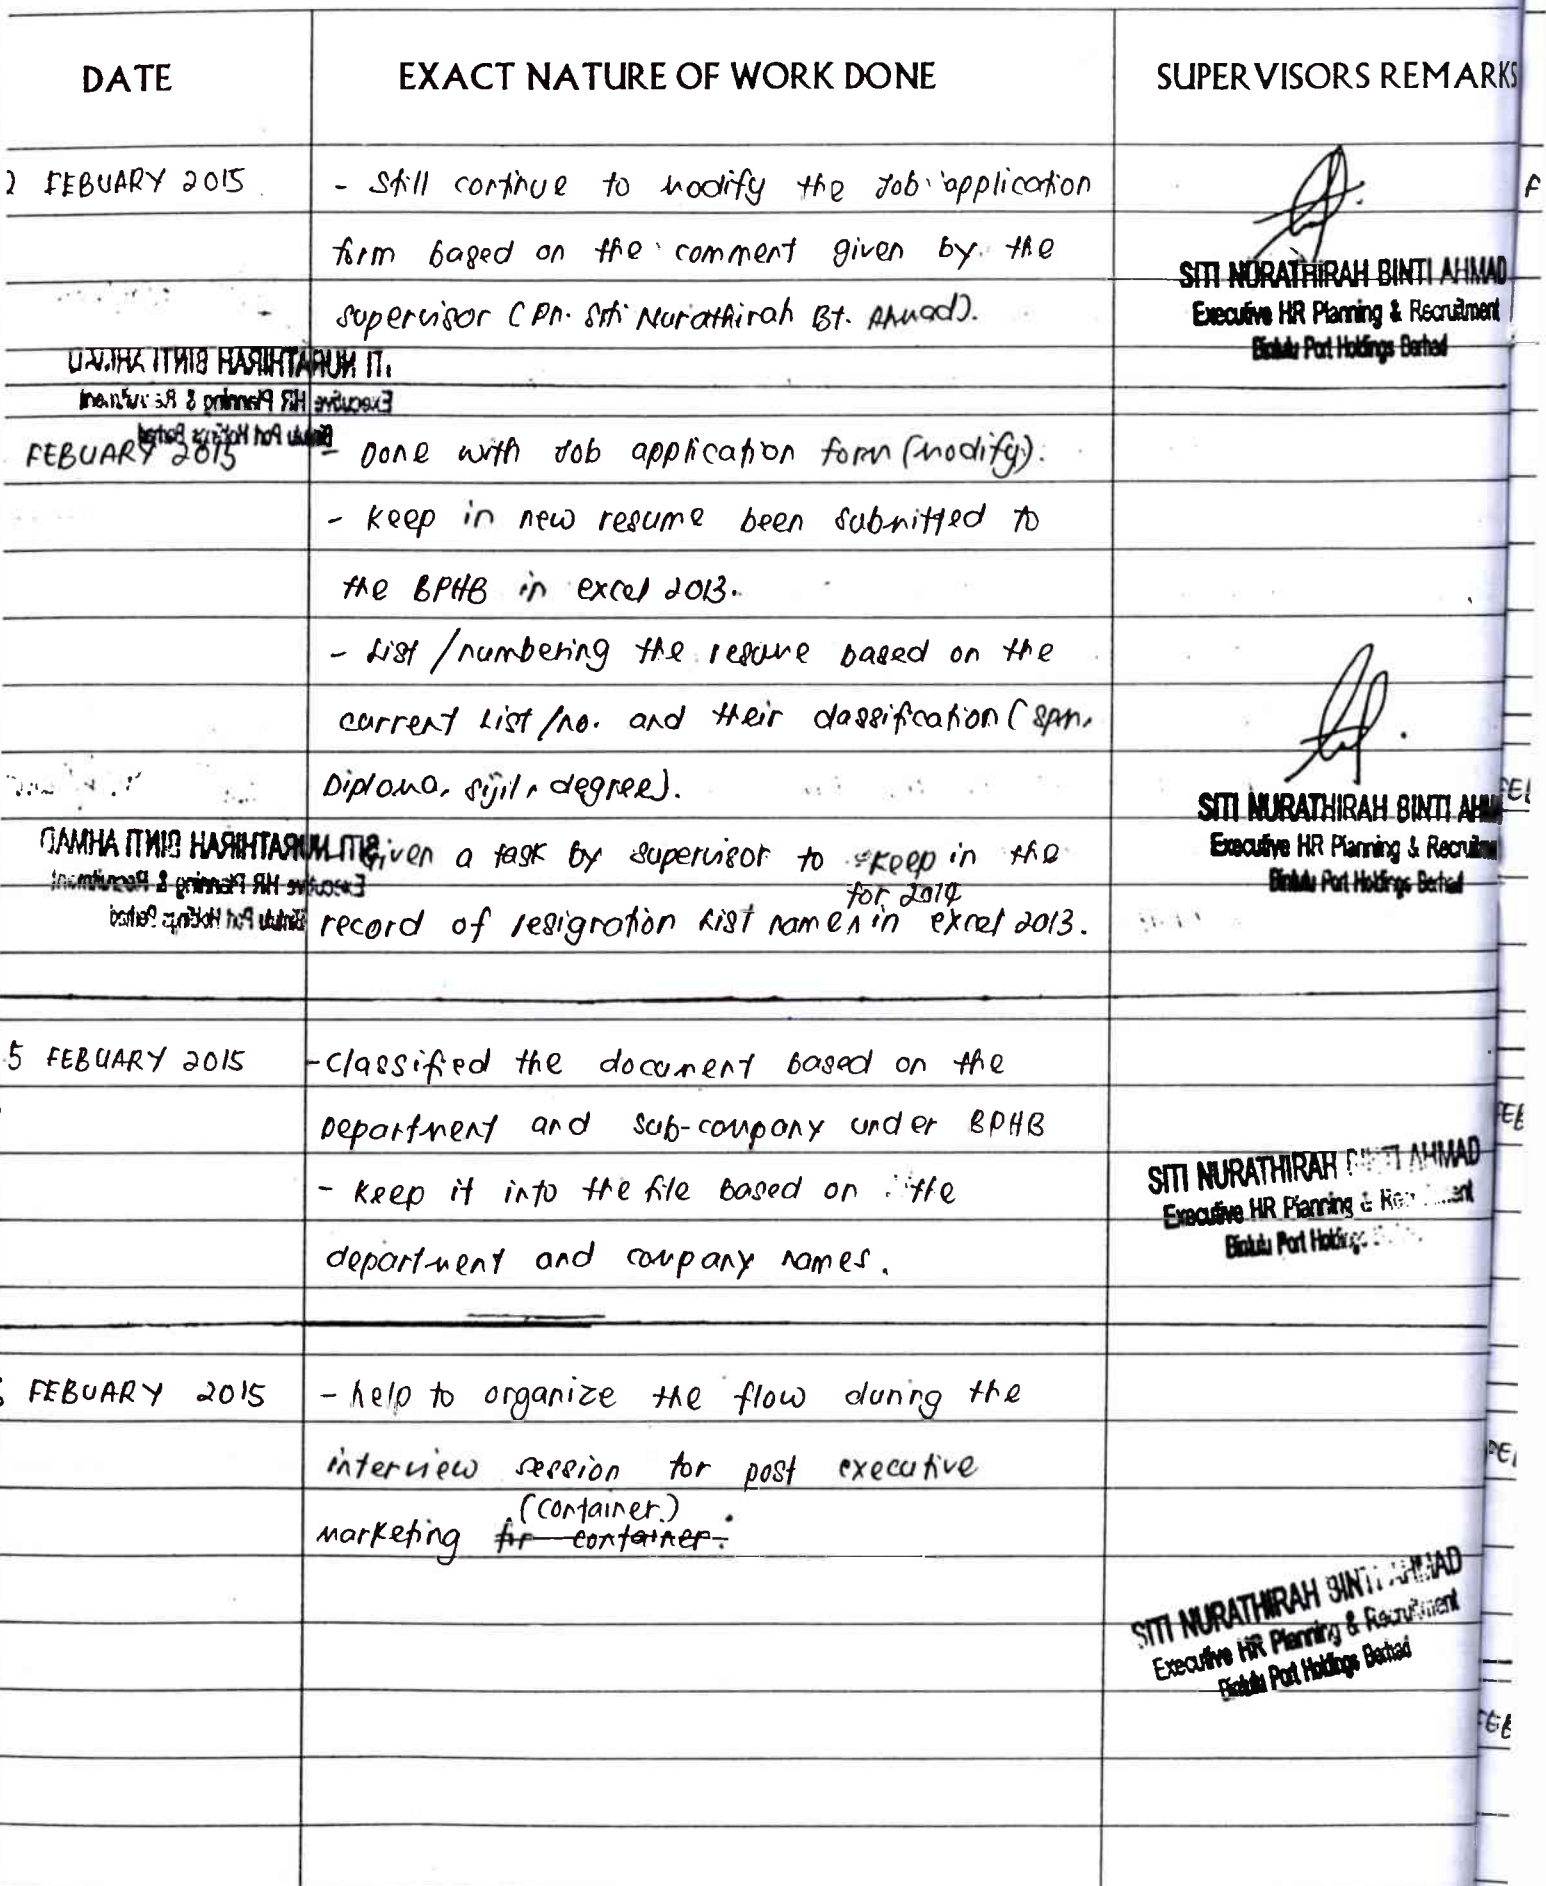 DATE
EXACT NATURE OF WORK DONE
SUPERVISORS REMARKS
2 FEBUARY 2015
- Still continue to modify the Job application
form based on the comment given by the
supervisor (Pn. Siti Nurathirah Bt. Ahmad).
SITI NURATHIRAH BINTI AHMAD
Executive HR Planning & Recruitment
Bintulu Port Holdings Berhad
FEBUARY 2015
- Done with Job application form (modify).
- Keep in new resume been submitted to
the BPHB in excel 2013.
- List /numbering the resume based on the
current List /no. and their classification (spm,
Diploma, sijil, degree).
given a task by supervisor to keep in the
for 2014
record of resignation List names in excel 2013.
SITI NURATHIRAH BINTI AHMA
Executive HR Planning & Recruitme
Bintulu Port Holdings Berhad
5 FEBUARY 2015
- Classified the document based on the
Department and sub-company under BPHB
- Keep it into the file based on the
department and company names.
SITI NURATHIRAH BINTI AHMAD
Executive HR Planning & Recruitment
Bintulu Port Holdings
FEBUARY 2015
- help to organize the flow during the
interview session for post executive
(container)
marketing for container.
SITI NURATHIRAH BINTI AHMAD
Executive HR Planning & Recruitment
Bintulu Port Holdings Berhad